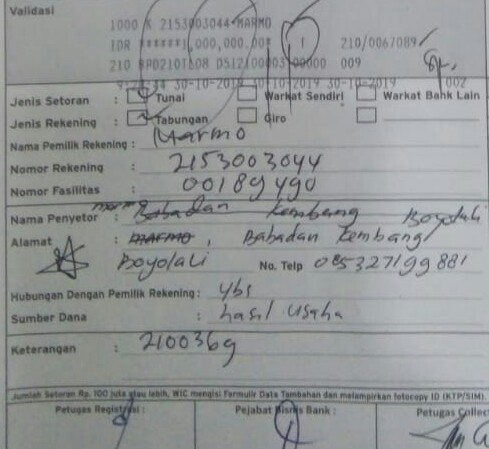 Validasi
1000 K 2153003044 MARMO
IDR ******1,000,000.00* 1 210/0067089
210 RP0210TT08 D512100003 00000 009
30-10-2019 30-10-2019 30-10-2019 002
Jenis Setoran : Tunai Warkat Sendiri Warkat Bank Lain
Jenis Rekening : Tabungan Giro
Nama Pemilik Rekening : Marmo
Nomor Rekening : 2153003044
Nomor Fasilitas : 00189490
Nama Penyetor : marmo Babadan Kembang Boyolali
Alamat : marmo, Babadan Kembang
Boyolali No. Telp 085327199881
Hubungan Dengan Pemilik Rekening : ybs
Sumber Dana : hasil usaha
Keterangan : 2100369
Jumlah Setoran Rp. 100 juta atau lebih, WIC mengisi Formulir Data Tambahan dan melampirkan fotocopy ID (KTP/SIM).
Petugas Registrasi : Pejabat Bisnis Bank : Petugas Collec